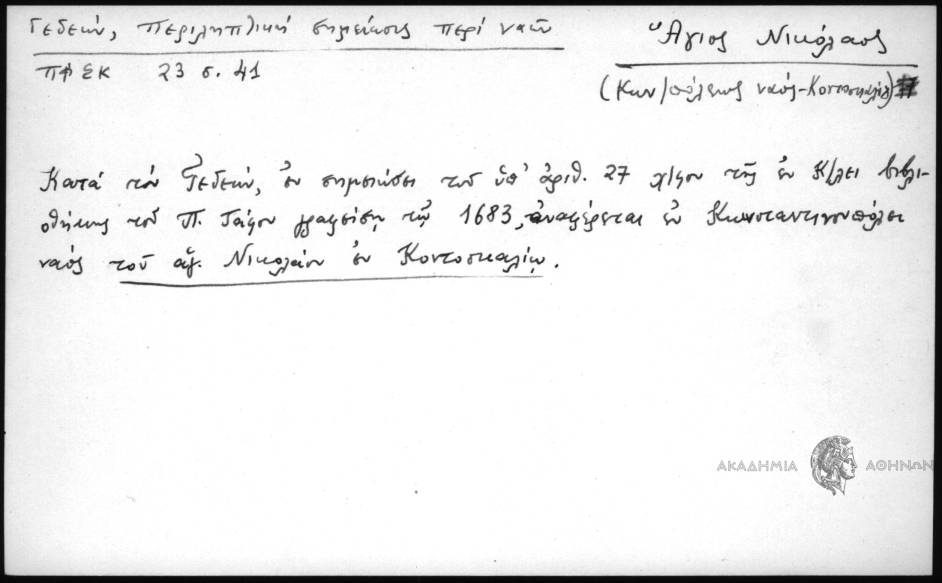 Γεδεών, Περιληπτική σημείωσις περί ναῶν
ΠΦΣΚ 23 σ. 41
Ἅγιος Νικόλαος
(Κων/πόλεως ναός-Κοντοσκαλίῳ)
Κατά τόν Γεδεών, ἐν σημειώσει τοῦ ὑπ' ἀριθ. 27 χ/φου τῆς ἐν Κ/λει βιβλι-
οθήκης τοῦ Π. Τάφου γραφείσῃ τῷ 1683, ἀναφέρεται ἐν Κωνσταντινουπόλει
ναός τοῦ ἁγ. Νικολάου ἐν Κοντοσκαλίῳ.
ΑΚΑΔΗΜΙΑ ΑΘΗΝΩΝ